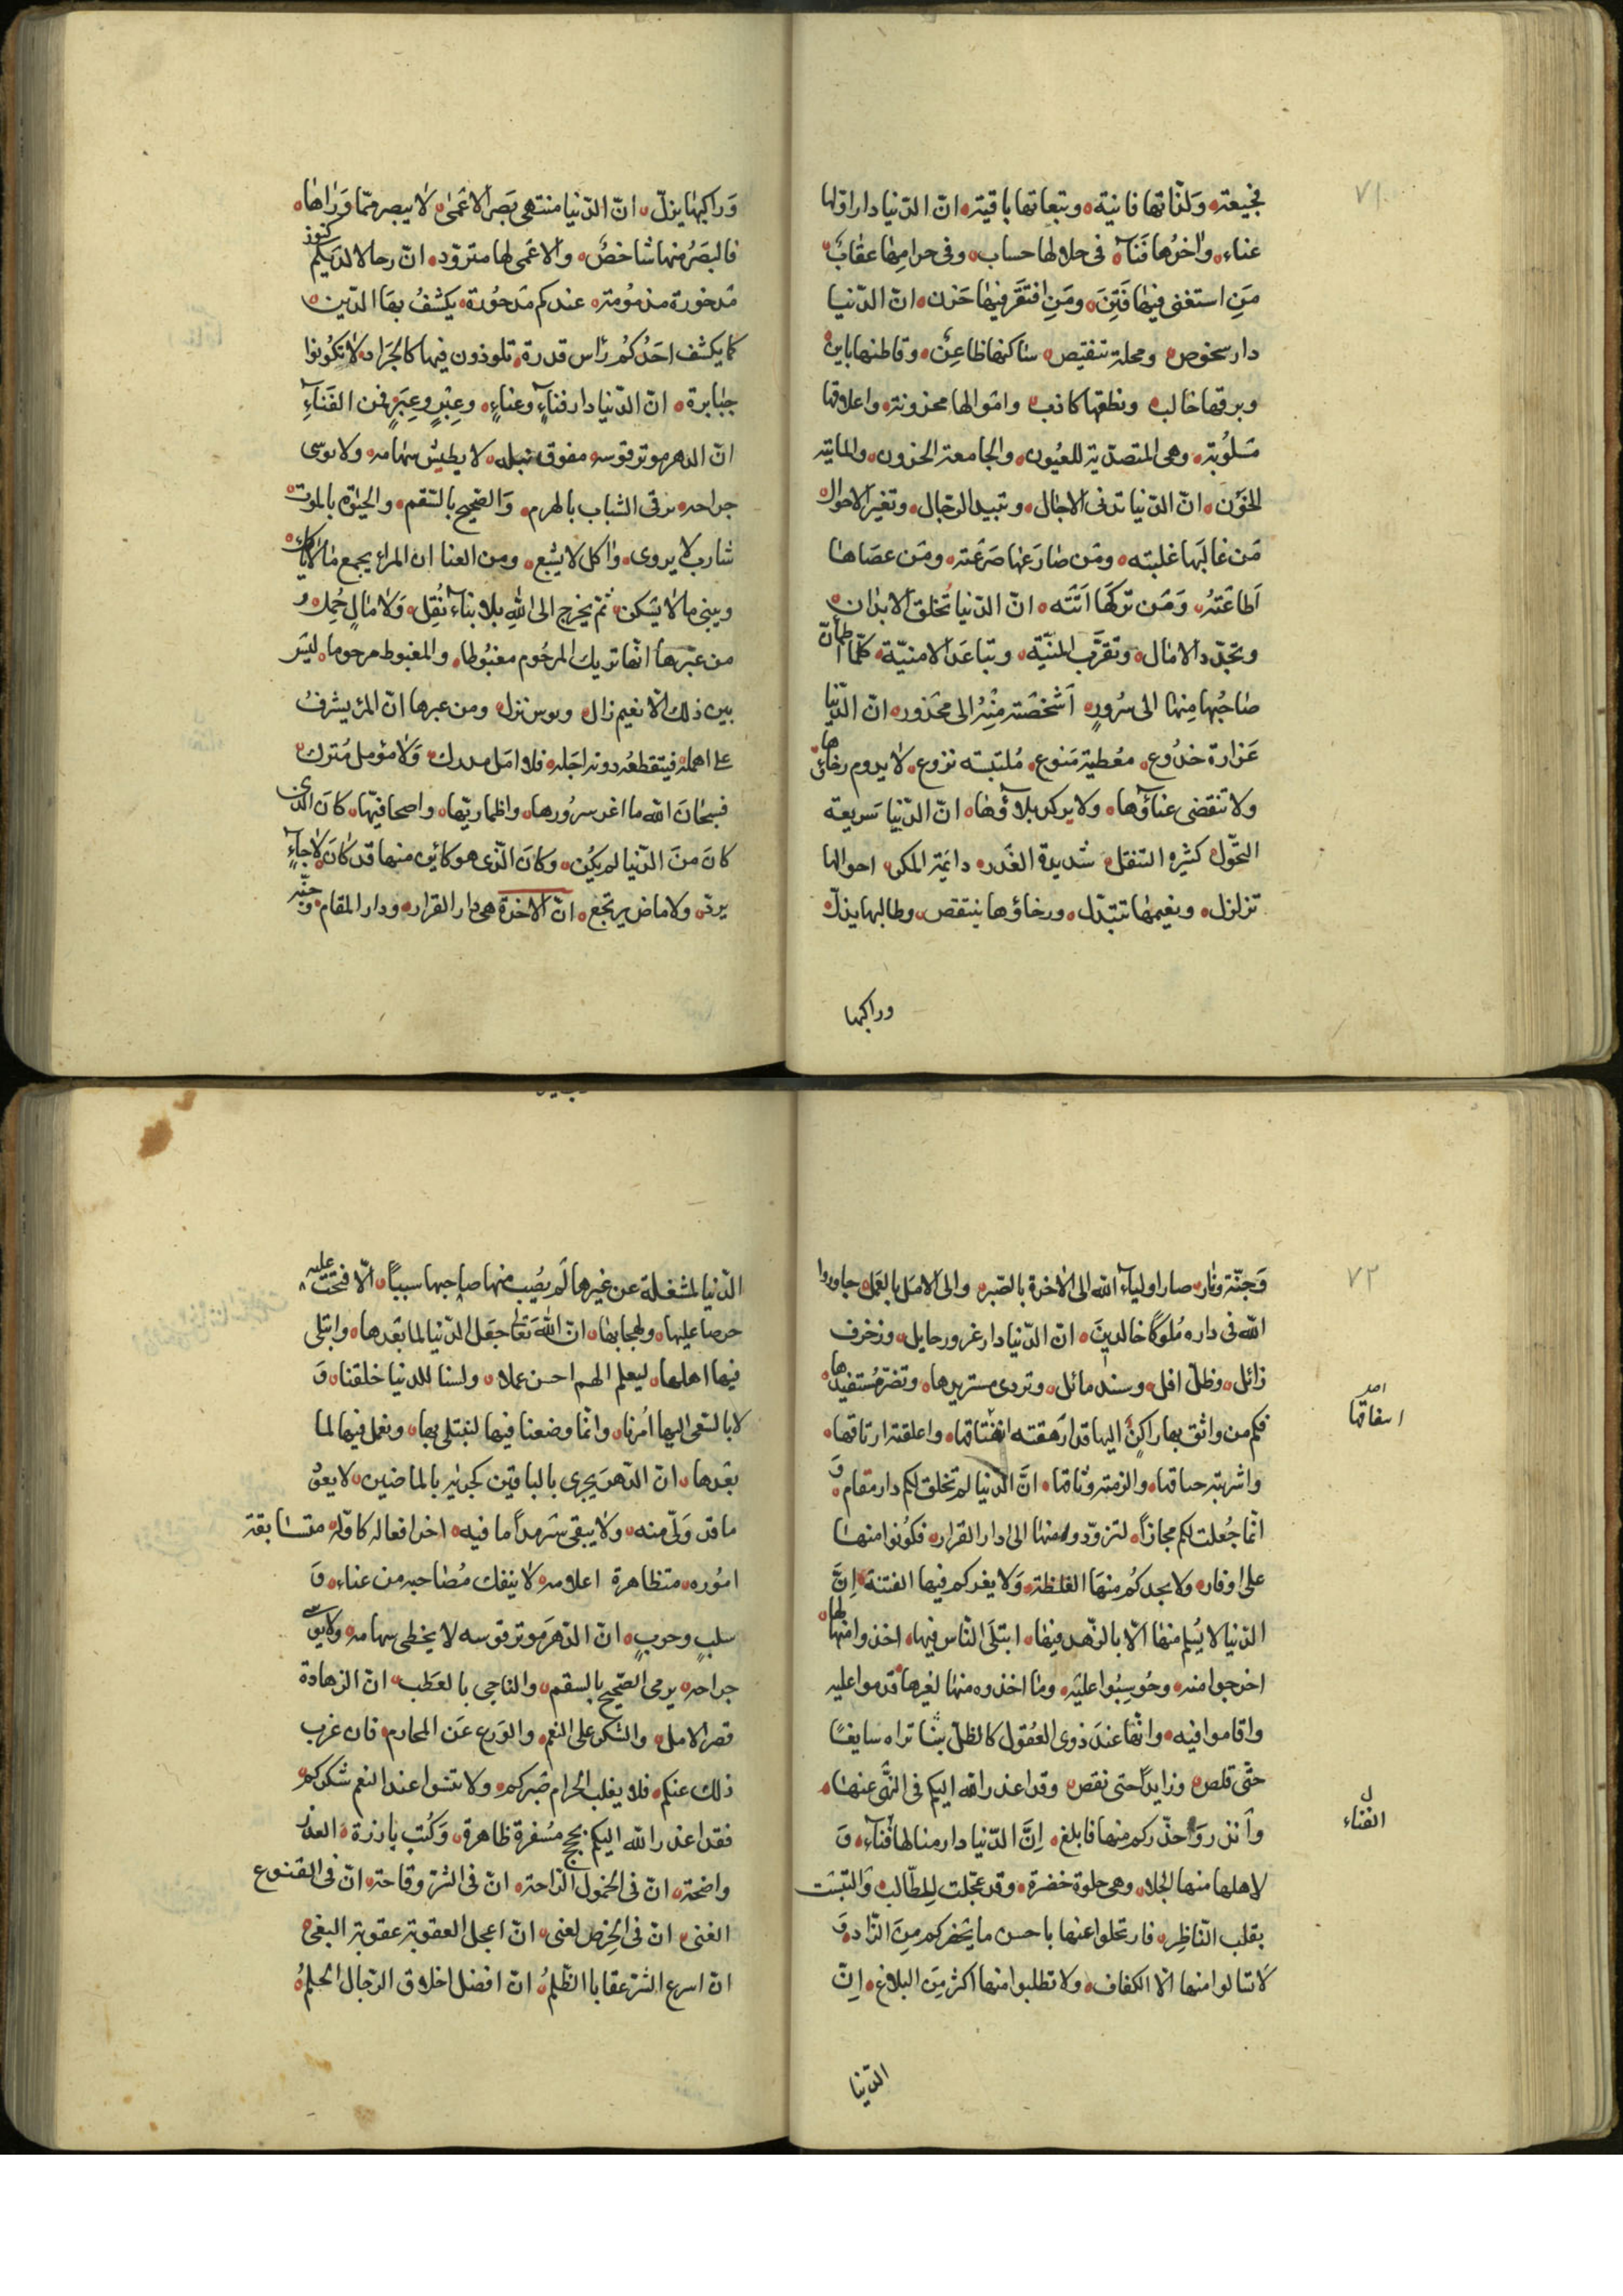 ٧١
بخيعته ولذاتها فانية وتبعاتها باقيته ان الدنيا دار اولها
عناء واخرها فناء فى حلالها حساب وفى حرامها عقاب
مَن استغنى فيها فَتِنَ ومَن افتقر فيها حَزن ان الدنيا
دار سخوص ومحلة تنقيص ساكنها ظاعِن وقاطنها باين
وبرقها خالب ونطقها كاذب واموالها محزونته واعلاقها
مَسلُوبته وهى المتصدّية للعيُون والجامعة الحزون والمايته
الخؤن انّ الدّنيا تدنى الاجال وتبيد الرّجال وتغير الاحوال
مَن غالبَها غلبته ومَن صارعها صَرعَته ومَن عصَاها
اَطاعَتهُ ومَن تركَهَا اَتَته انّ الدّنيا تُخلق الابدان
وتجدّد الامال وتقرّب المنيّة وتباعَد الامنيّة كلّما اطمأنّ
صاحبُها مِنها الى سُرُورٍ اَشخصَته مِنهُ الى محَذور انّ الدّنيا
غرارة خدُوع مُعطية مَنوع مُلبسَته نزوع لا يدوم رخاءها
ولا تنقضى عناؤها ولا يركد بلاؤها انّ الدّنيا سَريعة
التحّول كثيره التنقل شديدة الغَدر دايمَة المكر احوالها
تزلزل ونعيمها تتبدّل ورخاؤها ينتقص وطالبها يذل
وراكبها
وَراكبها يزلّ انّ الدّنيا منتهى بَصَر الاعمَى لا يبصر ممّا وَراها
فالبصَرُ منها شاخصٌ والاعمَى لها متزوّد انّ رحالا لديكم كنوز
مَدخورة مذمُومته عندكم مَدحُورة يكشفُ بها الدّين
كما يكشف احَدُكُم رأس قدرة تلوذون فيها كالجَراد لا تكُونوا
جبَابرة انّ الدّنيا دار فناءٍ وعناءٍ وغِيَرٍ وعِبَرٍ فمن الفَناءِ
انّ الدهر موتر قوسه مفوق نبله لا يطيش سهامه ولا يوسى
جراحه يرقى الشباب بالهرم والصّحيح بالسّقم والحيٰوة بالموت
شارب لا يروى واكل لا يشبع ومن العنا ان المراء يجمع ما لا ياكل
ويبنى ما لا يسكن ثمّ يخرج الى الله بلا بناء نُقِل ولا مالٍ حُمِل و
من عبّرها انّها تريك المرحُوم مغبُوطا والمغبوط مرحوما ليسَ
بين ذلك الّا نعيم زال وبوس نزل ومن عبرها انّ المرء يشرفُ
على امله فيتقطعُه دونه اجَله فلا امَل يدرك وَلا مؤمل مُترك
فسبحان الله ما اغر سرُورها واظما ريّها واضحا فيّها كانَ الّذى
كان منَ الدّنيا لم يكُن وكانَ الّذى هو كائن منها قد كانَ لا جاءٍ
يردّ ولا ماض يرتجع انّ الاخرة هى دار القرار ودار المقام وجنّة
٧٢
وَجنّة ونار صار اولياء الله الى الاخرة بالصّبر والى الامَل بالعمَل جاوروا
الله فى داره مُلوكًا خالدينَ انّ الدّنيا دار غرور حايل وزخرف
زائل وظلّ افل وسند مائل وتردى مستزيدها وتضرّ مُستفيدها
فكم من واثق بها راكنٍ اليها قد ارَهقته ايفثاقها واعلقته ارتاقها
امد
اسفاقها
واشربته خناقها والزمته وثاقها انّ الدّنيا لم تخلق لكم دار مقام و
انّما جُعلت لكم مجازاً لتزوّدوا منها الى دار القرار فكُونوا منها
على اوفاز ولا يجدكُم منها الغلظة ولا يغركم فيها الفتنة اِنَّ
الدّنيا لا يُسلم منها الّا بالزّهد فيها ابتلَى النّاس فيها اخذوا منها لها
اخرجوا منه وحُوسِبُوا عليَه وما اخذوه منها لغيرها قدموا عليه
واقاموا فيه وانّها عندَ ذوى العُقول كالظلّ بينا تراه سايغًا
حتّى قلص وزايداً حتى نقص وقد اعذر الله اليكم فى النّهى عنها
وانذر وَحذّركم منها فابلغ اِنَّ الدّنيا دار منالها فناء وَ
ل
الفناء
لاهلها منها الجلاء وهى حلوة خضرة وقد عجّلت لِلطّالب والتبسَت
بقلب النّاظِر فارتحلوا عنها باحسن ما يحضركم مِنَ الزّاد وَ
لا تسالوا منها الا الكفاف ولا تطلبوا منها اكثر مِنَ البلاغ اِنّ
الدّنيا
الدّنيا لمشغلة عن غيرها لَم يصُيب منها صاحبها سببًا الّا فتحت عليه
حرصا عليها ولهجا بها انّ اللّه تعَالى جعَل الدّنيا لما بعَدها وابتلى
فيها اهلها ليعلم ايهم احسن عملا ولسنا للدنيا خلقنا وَ
لا بالسّعى اليها اُمرنا وانّما وضعنا فيها لنبتلى بها ونعمل فيها لما
بعَدها انّ الدّهرَ يجرى بالباقين كجريه بالماضين لا يعوُد
ما قد وَلّى منه ولا يبقى سَرمداً ما فيه اخر افعاله كاوّله متسابقة
امُوره متظاهرة اعلامه لا ينفك مُصاحبه من عناء وَ
سلبٍ وحربٍ انّ الدّهرَ موتر قوسه لا يخطى سهامه ولا يوسى
جراحه يرمى الصّحيح بالسقم والناجى بالعَطَب انّ الزهادة
قصر الامل والشكر على النعم والوَرع عَن المحارم فان غرب
ذلك عنكم فلا يغلب الحرام صَبركم ولا تنسَوا عند النعم شكركم
فقد اعذر اللّه اليكم بحجج مُسفرة ظاهرة وَكُتب بارزة العذر
واضحة انّ فى الخمول الرّاحة انّ فى الشرّ وقاحة انّ فى القنوع
الغنى انّ فى الحِرص لعنى انّ اعجل العقوبة عقوبة البغى
انّ اسرع الشرّ عقابا الظّلمُ انّ افضل اخلاق الرّجال الحلمُ